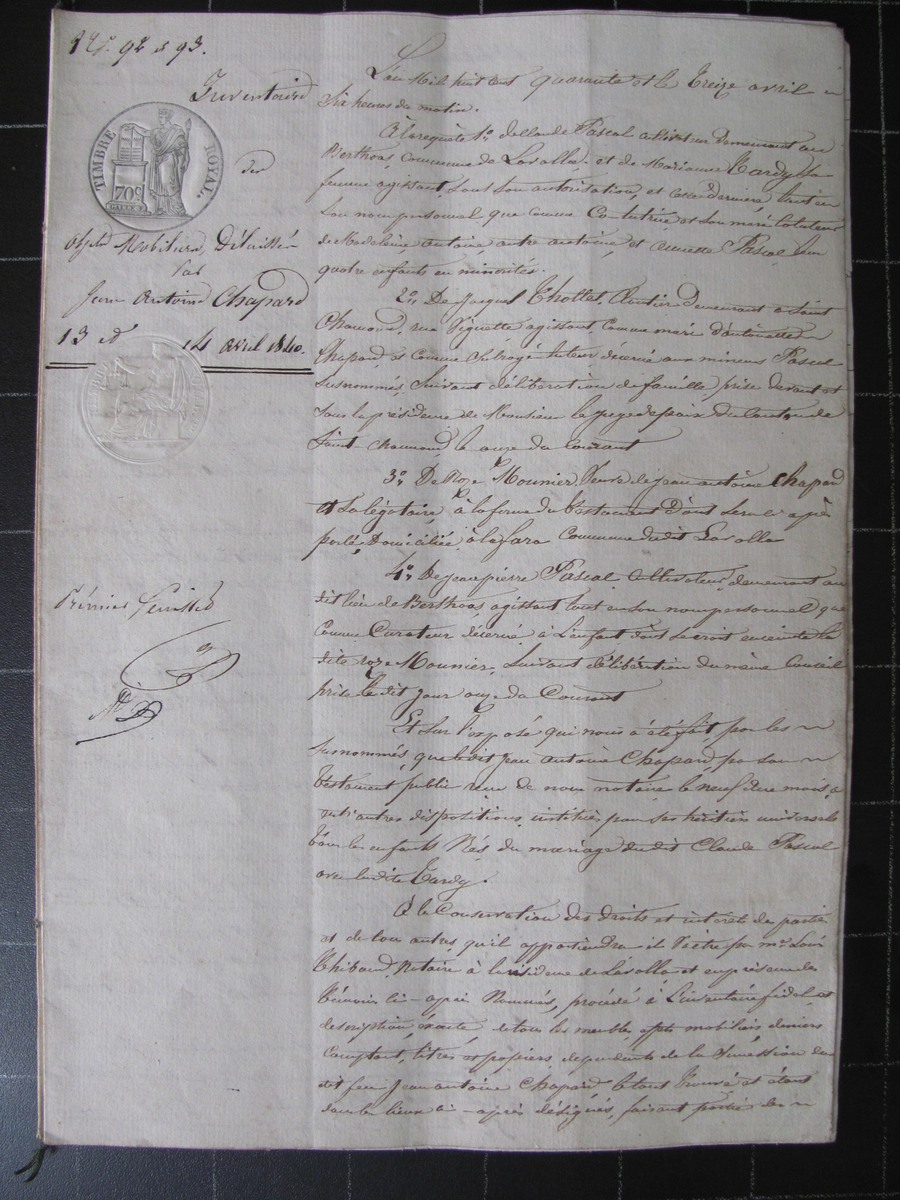 Nos. 92 et 93.
Inventaire
TIMBRE ROYAL.
70c
des
objets Mobiliers Délaissés
par
Jean Antoine Chapard
13 et 14 avril 1840.
Premier
L'an Mil huit cent quarante et le Treize avril
Six heures du matin.
À la requête 1o de Claude Pascal cultivateur Demeurant au
Berthoas, commune de Lavalla, et de Marianne Tardy Sa
femme agissant, sous son autorisation, et cette dernière tant en
Son nom personnel que comme et son mari
de Madeleine, antoine, autre antoine, et Pascal Leurs
quatre enfants en minorités.
2o De Jacques Thollet, Demeurant à Saint
Chamond, rue agissant Comme mari d'antoinette
Chapard, et comme Subrogé tuteur décerné aux mineurs Pascal
Susnommés, Suivant délibération de famille, prise devant et
Sous la présidence de Monsieur le Juge de paix du Canton de
Saint-chamond, le onze du Courant
3o De Roze Mounier, Veuve de Jean antoine Chapard
et Sa légataire, à la forme du Testament dont Sera ci après
parlé, Domiciliée, à la fara Commune dudit Lavalla
4o De Jean pierre Pascal Cultivateur, demeurant au
dit lieu de Berthoas agissant tant en Son nom personnel que
Comme Curateur décerné à L'enfant dont Se croit enceinte la
dite roze Mounier, Suivant délibération du même Conseil
prise le dit jour onze du Courant
Et Sur l'exposé qui nous a été fait par les
Susnommés, que ledit Jean Antoine Chapard, par Son
Testament public reçu de nous notaire le neuf du mois, a
entr'autres dispositions, institué pour ses héritiers universels
Tous les enfants Nés du mariage du dit Claude Pascal
avec la dite Tardy.
À la Conservation des droits et intérêts des parties
et de tous autres qu'il appartiendra il Va être par me Louis
Thibaud, Notaire à la résidence de Lavalla et en présence des
témoins ci-après Nommés, procédé à L'inventaire fidel et
description exacte, de tous les meubles, effets mobiliers deniers
Comptant, titres et papiers, dépendants de la Succession du
dit feu Jean antoine Chapard, le tout Trouvé et étant
dans les lieux ci-après désignés, faisant partie des